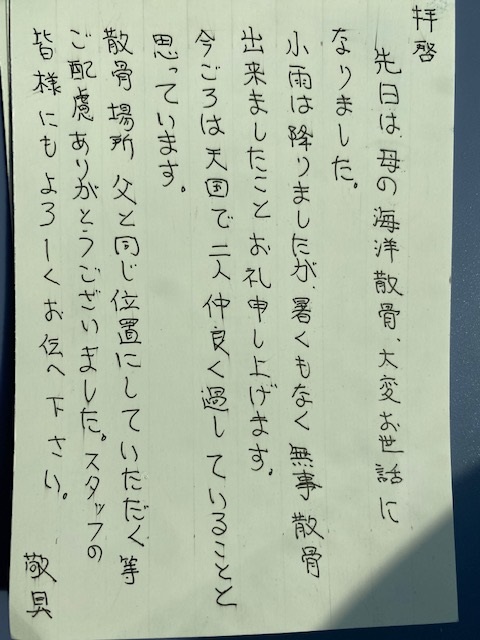 拝啓
先日は、母の海洋散骨、大変お世話に
なりました。
小雨は降りましたが、暑くもなく無事散骨
出来ましたことお礼申し上げます。
今ごろは天国で二人仲良く過していることと
思っています。
散骨場所父と同じ位置にしていただく等
ご配慮ありがとうございました。スタッフの
皆様にもよろしくお伝へ下さい。
敬具